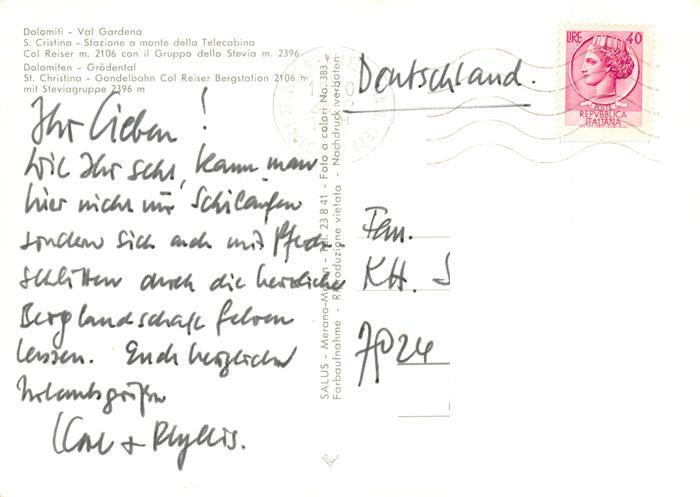 Dolomiti - Val Gardena
S. Cristina - Stazione a monte della Telecabina
Col Reiser m. 2106 con il Gruppo dello Stevia m. 2396
Dolomiten - Grödental
St. Christina - Gondelbahn Col Reiser Bergstation 2106 m
mit Steviagruppe 2396 m
Ihr Lieben!
Wie Ihr seht, kann man
hier nicht nur Schilaufen
sondern sich auch mit Pferde-
schlitten durch die herrliche
Berglandschaft fahren
lassen. Euch herzliche
Urlaubsgrüße
+ Phyllis.
SALUS - Merano-Meran - Tel. 23 8 41 - Foto a colori No. 383
Farbaufnahme - Riproduzione vietata - Nachdruck verboten
LIRE 40
POSTE
REPVBBLICA
ITALIANA
Deutschland.
Fam.
KH. S
7024